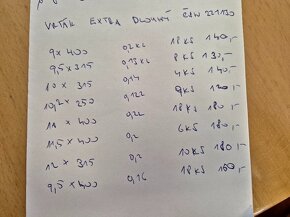 VRTÁK EXTRA DLOUHÝ ČSN 221130
9 x 400 0,2 KG 18 KS 140,-
9,5 x 315 0,13 KG 8 KS 130,-
10 x 315 0,14 4 KS 140,-
10,2 x 250 0,122 9 KS 120,-
11 x 400 0,22 18 KS 180,-
11,5 x 400 0,2 6 KS 180,-
12 x 315 0,2 10 KS 180,-
9,5 x 400 0,16 18 KS 150,-